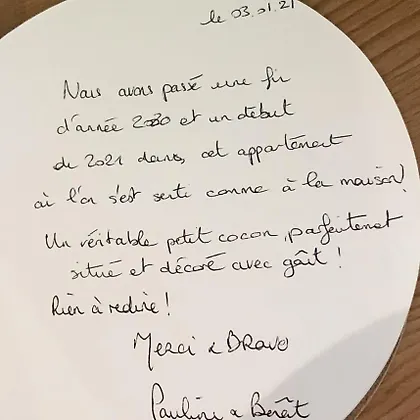 le 03.01.21
Nous avons passé une fin
d'année 2020 et un début
de 2021 dans cet appartement
où l'on s'est senti comme à la maison!
Un véritable petit cocon, parfaitement
situé et décoré avec goût !
Rien à redire !
Merci & BRAVO
Pauline & Benoît